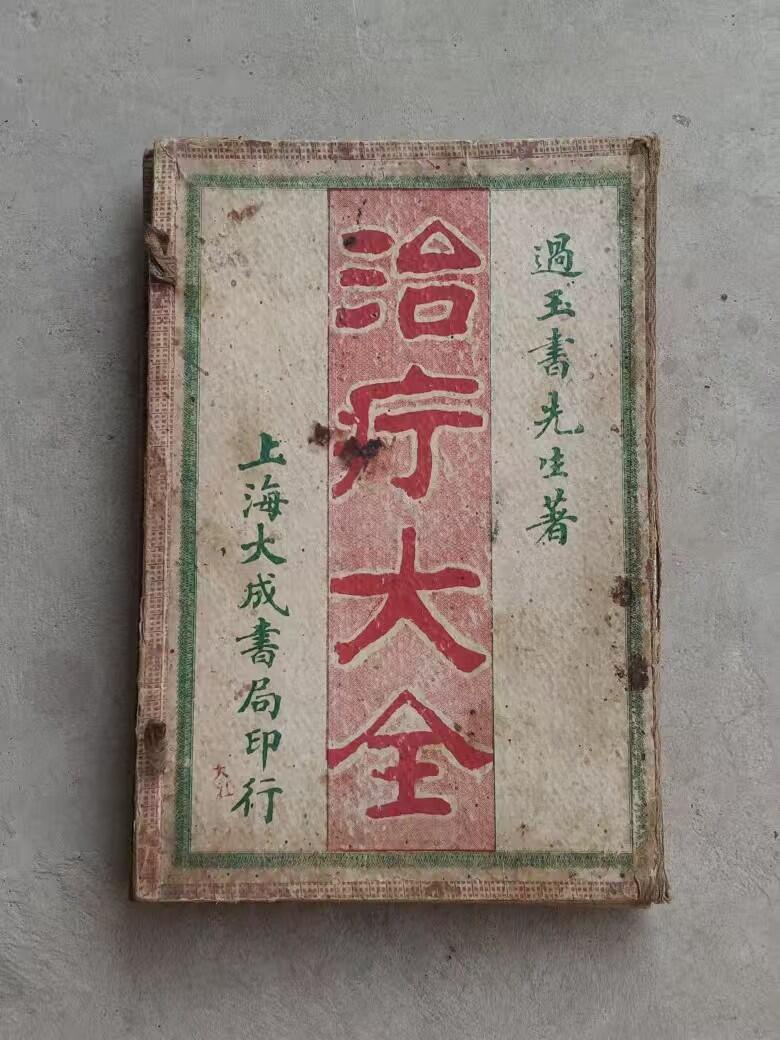 過玉書先生著
治疔大全
上海大成書局印行